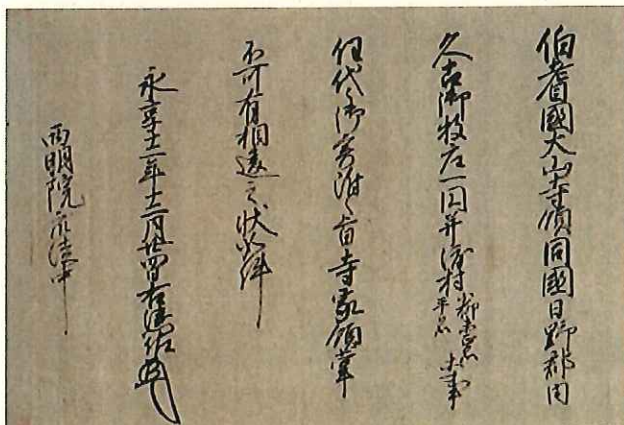 伯耆國大山寺領同國日野郡内
久古御牧庄一円并渡村等事
任代々御寄附之旨寺家領掌
不可有相違之状如件
永享十二年十二月廿四日右馬佐
西明院衆徒中